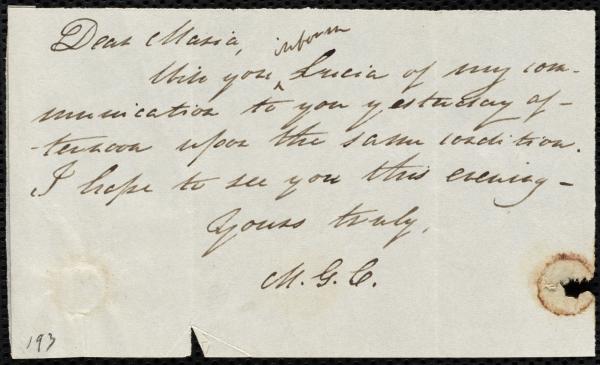 Dear Maria,
Will you ^inform Lucia of my com-
munication to you yesterday af-
-ternoon upon the same condition.
I hope to see you this evening -
Yours truly,
M. G. C.
193